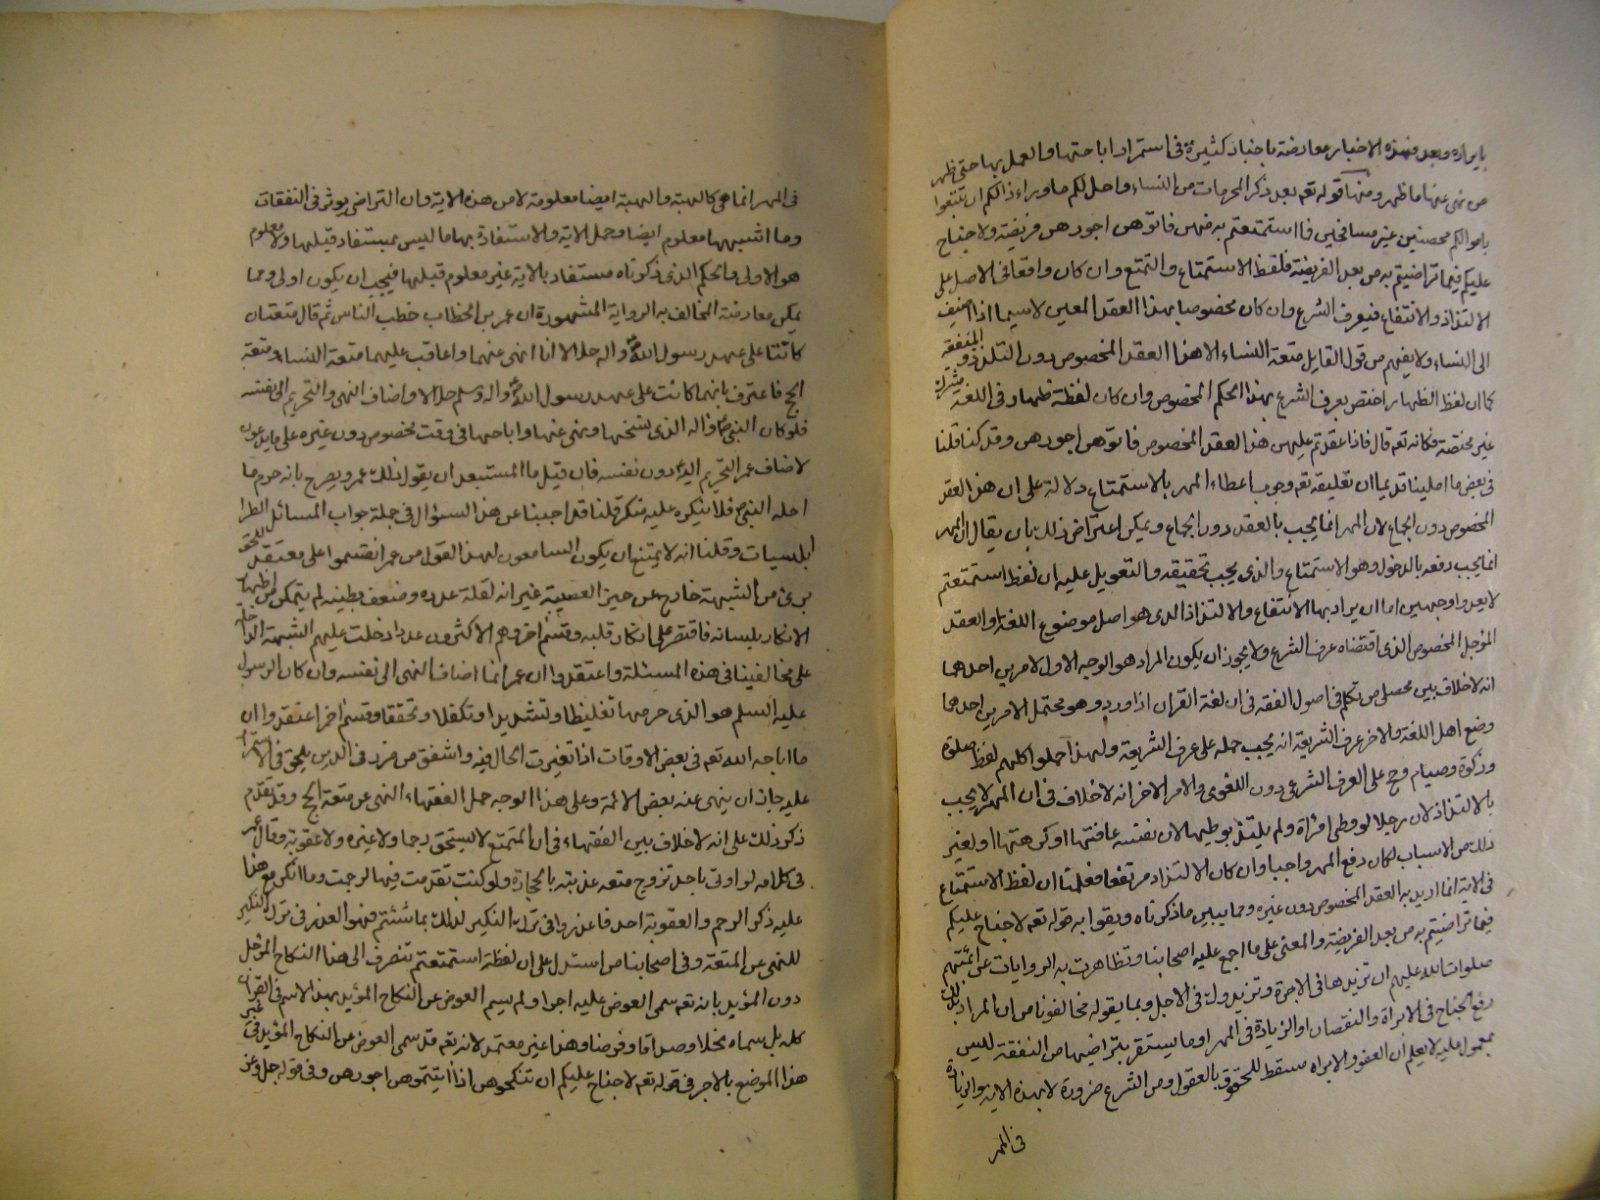 بايراده وبعد فهذه الاخبار معارضة باخبار كثيرة في استمرار اباحتها والعمل بها حتى ظهر
من نهى عنها ما ظهر ومنها قوله تعه بعد ذكر المحرمات من النساء واحل لكم ما وراء ذالكم ان تبتغوا
باموالكم محصنين غير مسافحين فما استمتعتم به منهن فاتوهن اجورهن فريضة ولا جناح
عليكم فيما تراضيتم به من بعد الفريضة فلفظ الاستمتاع والتمتع وان كان واقعا في الاصل على
الالتذاذ والانتفاع فبعرف الشرع وان كان مخصوصا بهذا العقد المعين لاسيما اذا اضيف
الى النساء ولا يفهم من قول القايل متعة النساء الا هذا العقد المخصوص دون التلذذ والمنفعة
كما ان لفظ الظهار اختص بعرف الشرع بهذا الحكم المخصوص وان كان لفظة ظهار في اللغة مشتركة
غير مختصة فكانه تعه قال فاذا عقدتم عليهن هذا العقد المخصوص فاتوهن اجورهن وقد كنا قلنا
في بعض ما امليناه قديما ان تعليقه تعه وجوب اعطاء المهر بالاستمتاع دلالة على ان هذا العقد
المخصوص دون الجماع لان المهر انما يجب بالعقد دون الجماع ويمكن اعتراض ذلك بان يقال ان المهر
انما يجب دفعه بالدخول وهو الاستمتاع والذي يجب تحقيقه والتعويل عليه ان لفظ استمتعتم
لا يعدوا وجهين اما ان يراد بها الانتفاع والالتذاذ الذي هو اصل موضوع اللغة او العقد
المؤجل المخصوص الذي اقتضاه عرف الشرع ولا يجوز ان يكون المراد هو الوجه الاول لامرين احدهما
انه لا خلاف بين محصلي من تكلم في اصول الفقه في ان لغة القران اذا ورد وهو محتمل لامرين احدهما
وضع اهل اللغة والاخر عرف الشريعة انه يجب حمله على عرف الشريعة ولهذا حملوا كلهم لفظ صلوة
وزكوة وصيام وحج على العرف الشرعي دون اللغوي والامر الاخر انه لا خلاف في ان المهر لا يجب
بالالتذاذ لان رجلا لو وطى امراة ولم يلتذ بوطيها لان نفسه عافتها او كرهتها او لغير
ذلك من الاسباب لكان دفع المهر واجبا وان كان الالتذاذ مرتفعا فعلمنا ان لفظ الاستمتاع
في الاية انما اريد به العقد المخصوص دون غيره ومما يبين ما ذكرناه ويقوا به قوله تعه لا جناح عليكم
فيما تراضيتم به من بعد الفريضة والمعنى على ما اجمع عليه اصحابنا وتظاهرت به الروايات عن ائمتهم
صلوات الله عليهم ان تزيدها في الاجرة وتزيدك في الاجل وبما يقوله مخالفونا من ان المراد بذلك
رفع الجناح في الابراة والنقصان او الزيادة في المهر او ما يستقر بتراضيهما من النفقة ليس
بمعمول عليه لا يعلم ان العفو والابراء مسقط للحقوق بالعقول ومن الشرع ضرورة لا بهذه الاية والزيادة
في المهر
في المهر انما هي كالهبة والهبة ايضا معلومة لا من هذه الاية وان التراضي يوثر في النفقات
وما اشبهها معلوم ايضا وحمل الاية والاستفادة بها ما ليس بمستفاد قبلها ولا معلوم
هو الاولى والحكم الذي ذكرناه مستفاد بالاية غير معلوم قبلها فيجب ان يكون اولى ومما
يمكن معارضة المخالف به الرواية المشهورة ان عمر بن الخطاب خطب الناس ثم قال متعتان
كانتا على عهد رسول الله ص واله حلالا انا انهى عنهما واعاقب عليهما متعة النساء ومتعة
الحج فاعترف بانهما كانت على عهد رسول الله ص واله وسلم حلالا واضاف النهى والتحريم الى نفسه
فلو كان النبي ص واله الذي نسخها ونهى عنها واباحها في وقت مخصوص دون غيره على ما يدعون
لاضاف عمر التحريم اليه دون نفسه فان قيل ما المستبعد ان يقول ذلك عمر ويصرح بانه حرم ما
احله النبي ص فلا ينكره عليه منكر قلنا قد اجبنا عن هذا السؤال في جملة جواب المسائل الطرا
ابلسيات وقلنا انه لا يمتنع ان يكون السامعون لهذا القول من عمر انقسموا على معتقد للحق
بريء من الشبهة خارج عن حيز العصبية غير انه لقلة عدده وضعف بطشه لم يتمكن من اظهار
الانكار بلسانه فاقتصر على انكار قلبه وقسم اخر وهم الاكثرون عددا دخلت عليهم الشبهة الداخلة
على مخالفينا في هذه المسئلة واعتقدوا ان عمر انما اضاف النهى الى نفسه وان كان الرسول
عليه السلم هو الذي حرمها تغليظا وتشديدا وتكفلا وتحققا وقسم اخر اعتقدوا ان
ما اباحه الله تعه في بعض الاوقات اذا تغيرت الحال فيه واشفق من ضرر في الدين يلحق في الاستمرار
عليه جاز ان ينهى عنه بعض الائمة وعلى هذا الوجه حمل الفقهاء النهى عن متعة الحج وقد تقدم
ذكر ذلك على انه لا خلاف بين الفقهاء في ان المتمتع لا يستحق رجما ولا غيره ولا عقوبة وقال عمر
في كلامه لو اوتى باحد تزوج متعه عذبته بالحجارة ولو كنت تقدمت فيها لرجمت وما انكر مع هذا
عليه ذكر الرجم والعقوبة احد فاعذروا في ترك النكير لذلك بما شئتم فهو العذر في ترك النكير
للنهى عن المتعة وفي اصحابنا من استدل على ان لفظة استمتعتم تنصرف الى هذا النكاح المؤجل
دون المؤبد بانه تعه سمى العوض عليه اجرا ولم يسم العوض عن النكاح المؤبد بهذا الاسم في القران
كله بل سماه نحلا وصداقا وفرضا وهذا غير معتمد لانه تعه قد سمى العوض عن النكاح المؤبد في غير
هذا الموضع بالاجر في قوله تعه لا جناح عليكم ان تنكحوهن اذا اتيتموهن اجورهن وفي قوله جل وعز